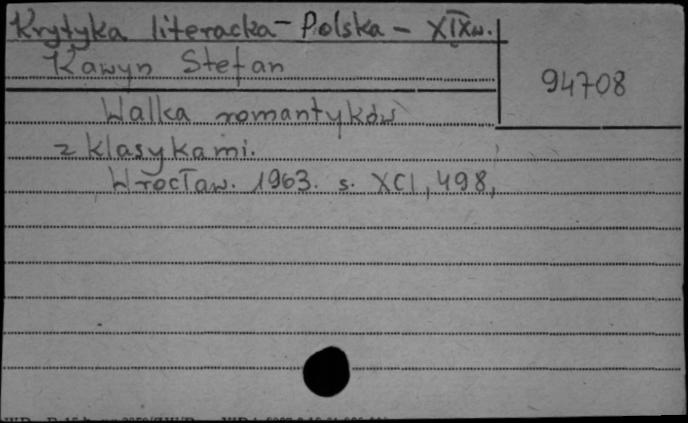 Krytyka literacka - Polska - XIXw.
Kawyn Stefan
94708
Walka romantyków
z klasykami.
Wrocław. 1963. s. XCI, 498,